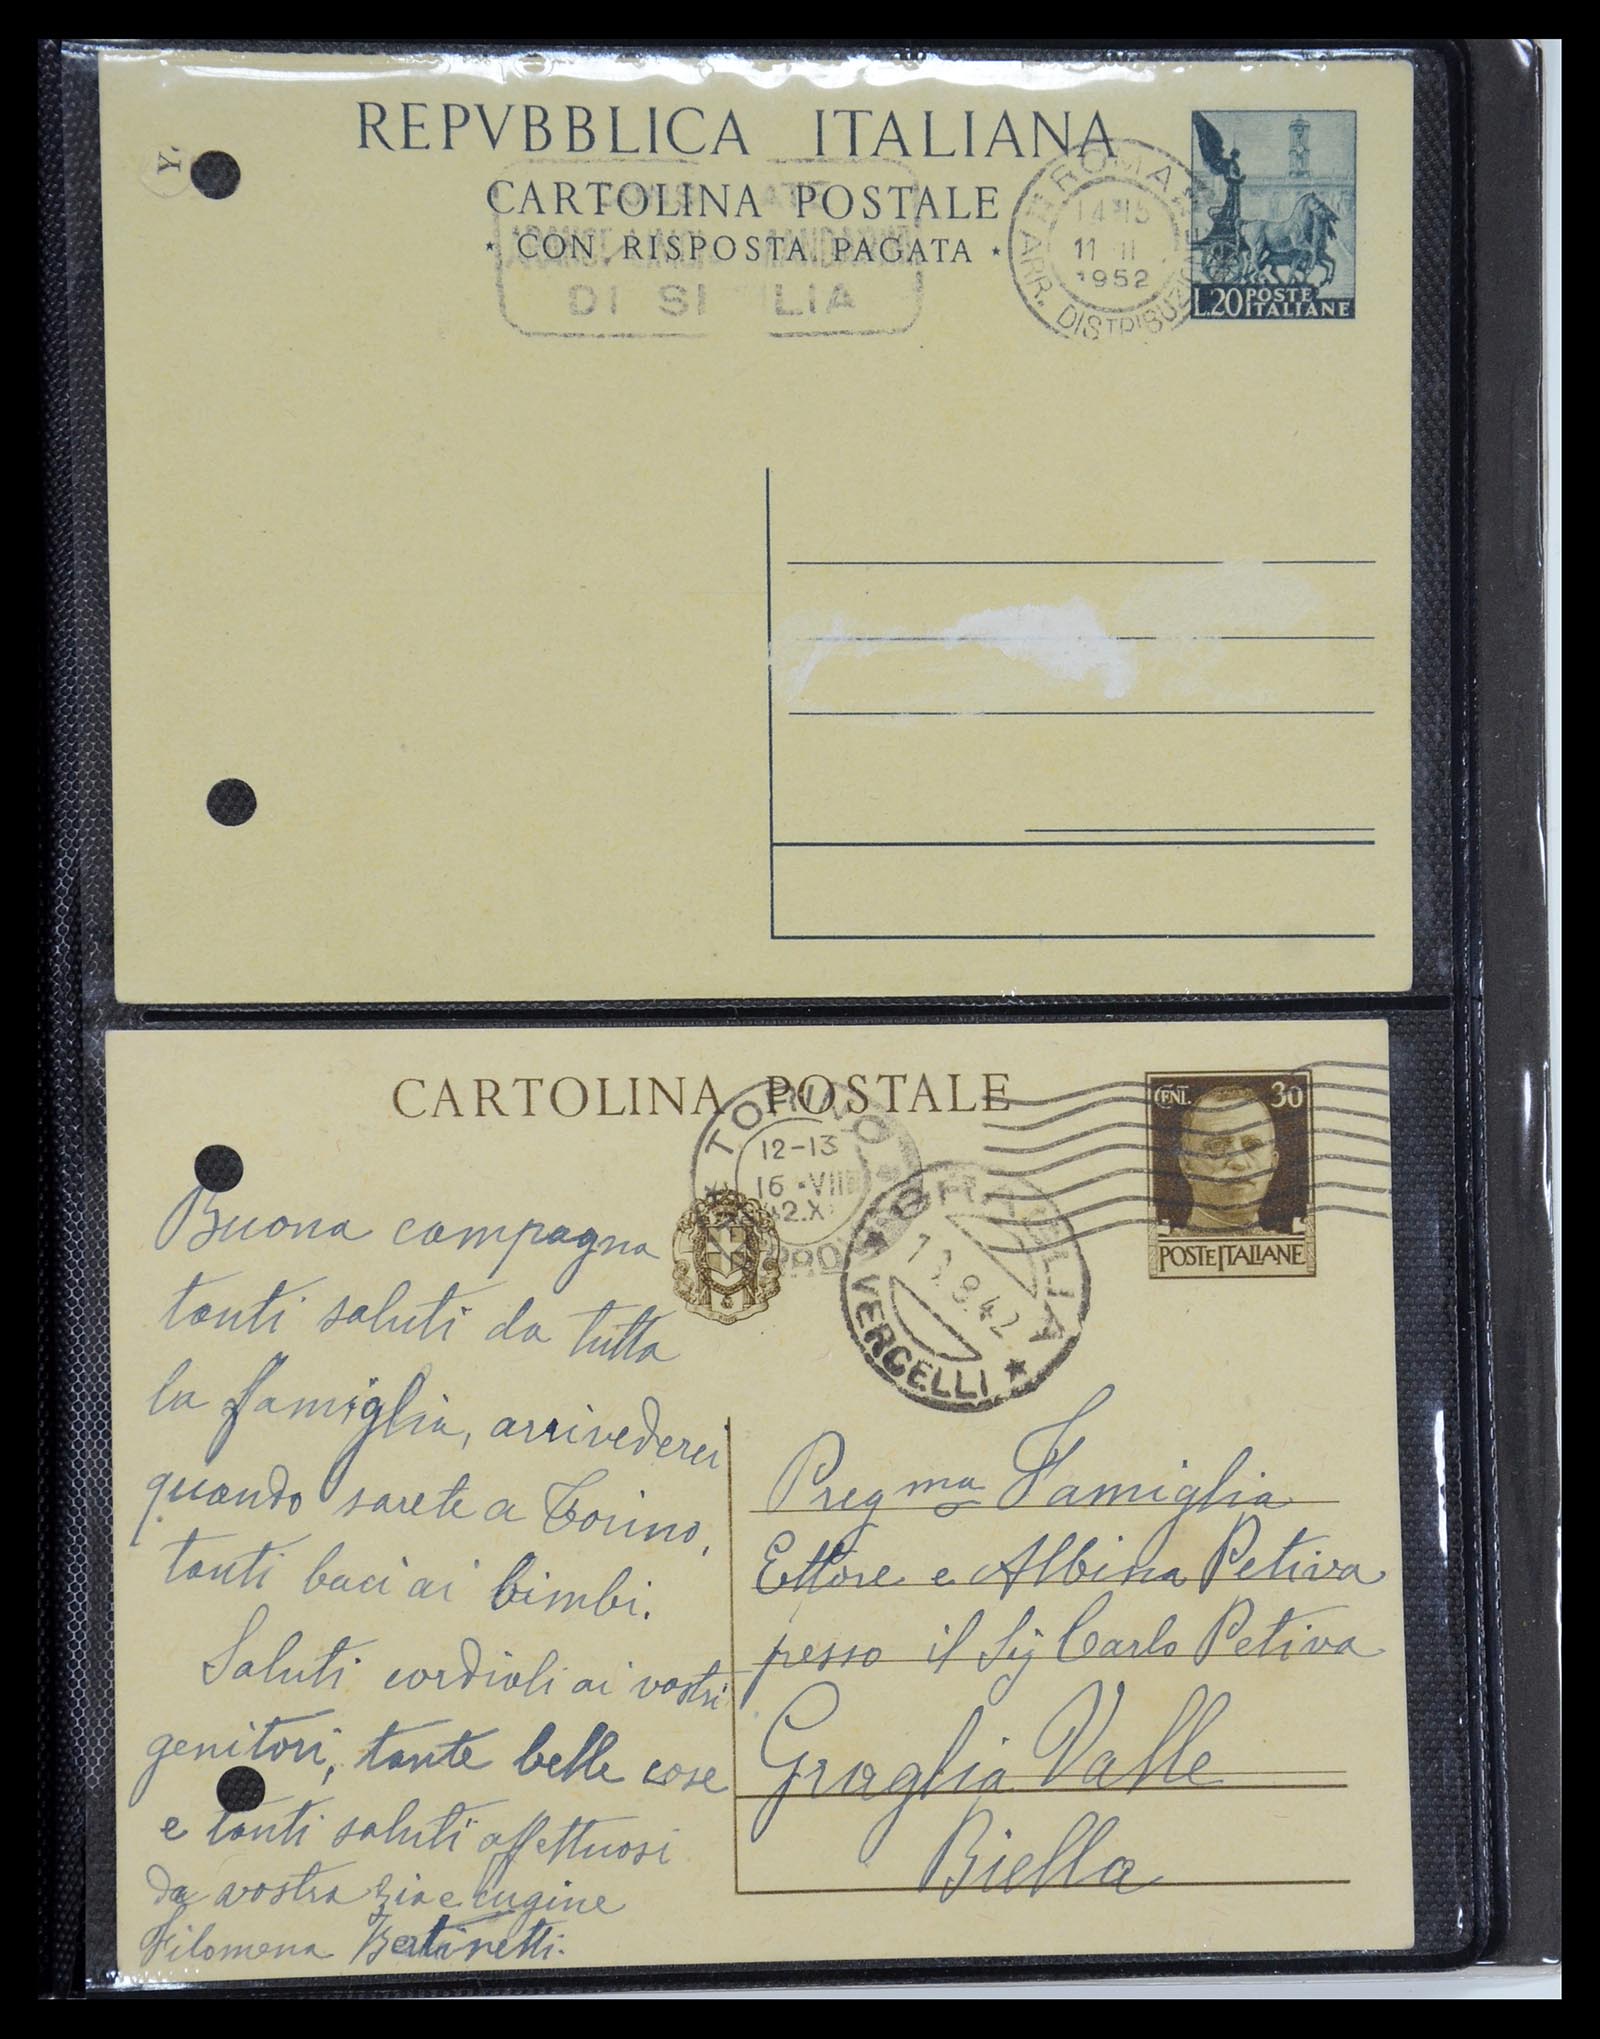 REPVBBLICA ITALIANA
CARTOLINA POSTALE
* CON RISPOSTA PAGATA *
Y.
DI SI ILIA
ROMA
14-15
11 II
1952
ARR. DISTRIBUZIONE
L.20 POSTE
ITALIANE
CARTOLINA POSTALE
TORINO
12-13
16 VIII
42.X
CENT. 30
POSTE ITALIANE
GRAGLIA
9.42
VERCELLI
Buona campagna
tanti saluti da tutta
la famiglia, arrivederci
quando sarete a Torino,
tanti baci ai bimbi.
Saluti cordiali ai vostri
genitori, tante belle cose
e tanti saluti affettuosi
da vostra zia e cugine
Filomena Bertinetti.
Pregma Famiglia
Ettore e Albina Petiva
presso il Sig Carlo Petiva
Graglia Valle
Biella